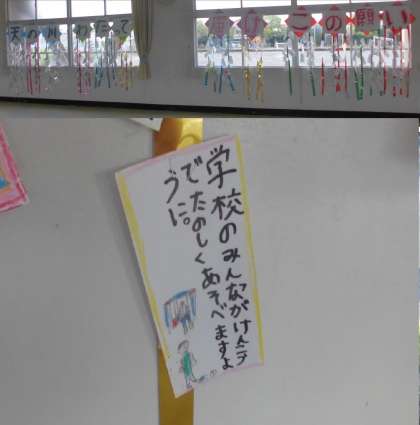 天の川わたって
届けこの願い
学校のみんながけんこう
でたのしくあそべますよ
うに。